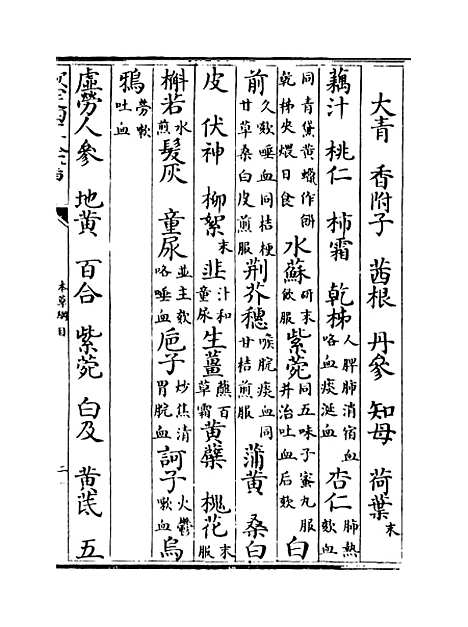 大青 香附子 茜根 丹參 知母 荷葉末
藕汁 桃仁 柿霜 乾柹入脾肺消宿血咯血痰涎血 杏仁肺熱欬血
同青黛黄蠟作餅乾柹夾煨日食 水蘇研末飲服 紫菀同五味子蜜丸服并治吐血后欬 白
前久欬唾血同桔梗甘草桑白皮煎服 荆芥穗喉脘痰血同甘桔煎服 蒲黄 桑白
皮 伏神 柳絮末 韭汁和童尿 生薑蘸百草霜 黄蘗 槐花末服
槲若水煎 髮灰 童尿並主欬咯唾血 巵子炒焦清胃脘血 訶子火鬱嗽血 烏
鴉勞欬吐血
虛勞人參 地黄 百合 紫菀 白及 黄茋 五
本草綱目
二